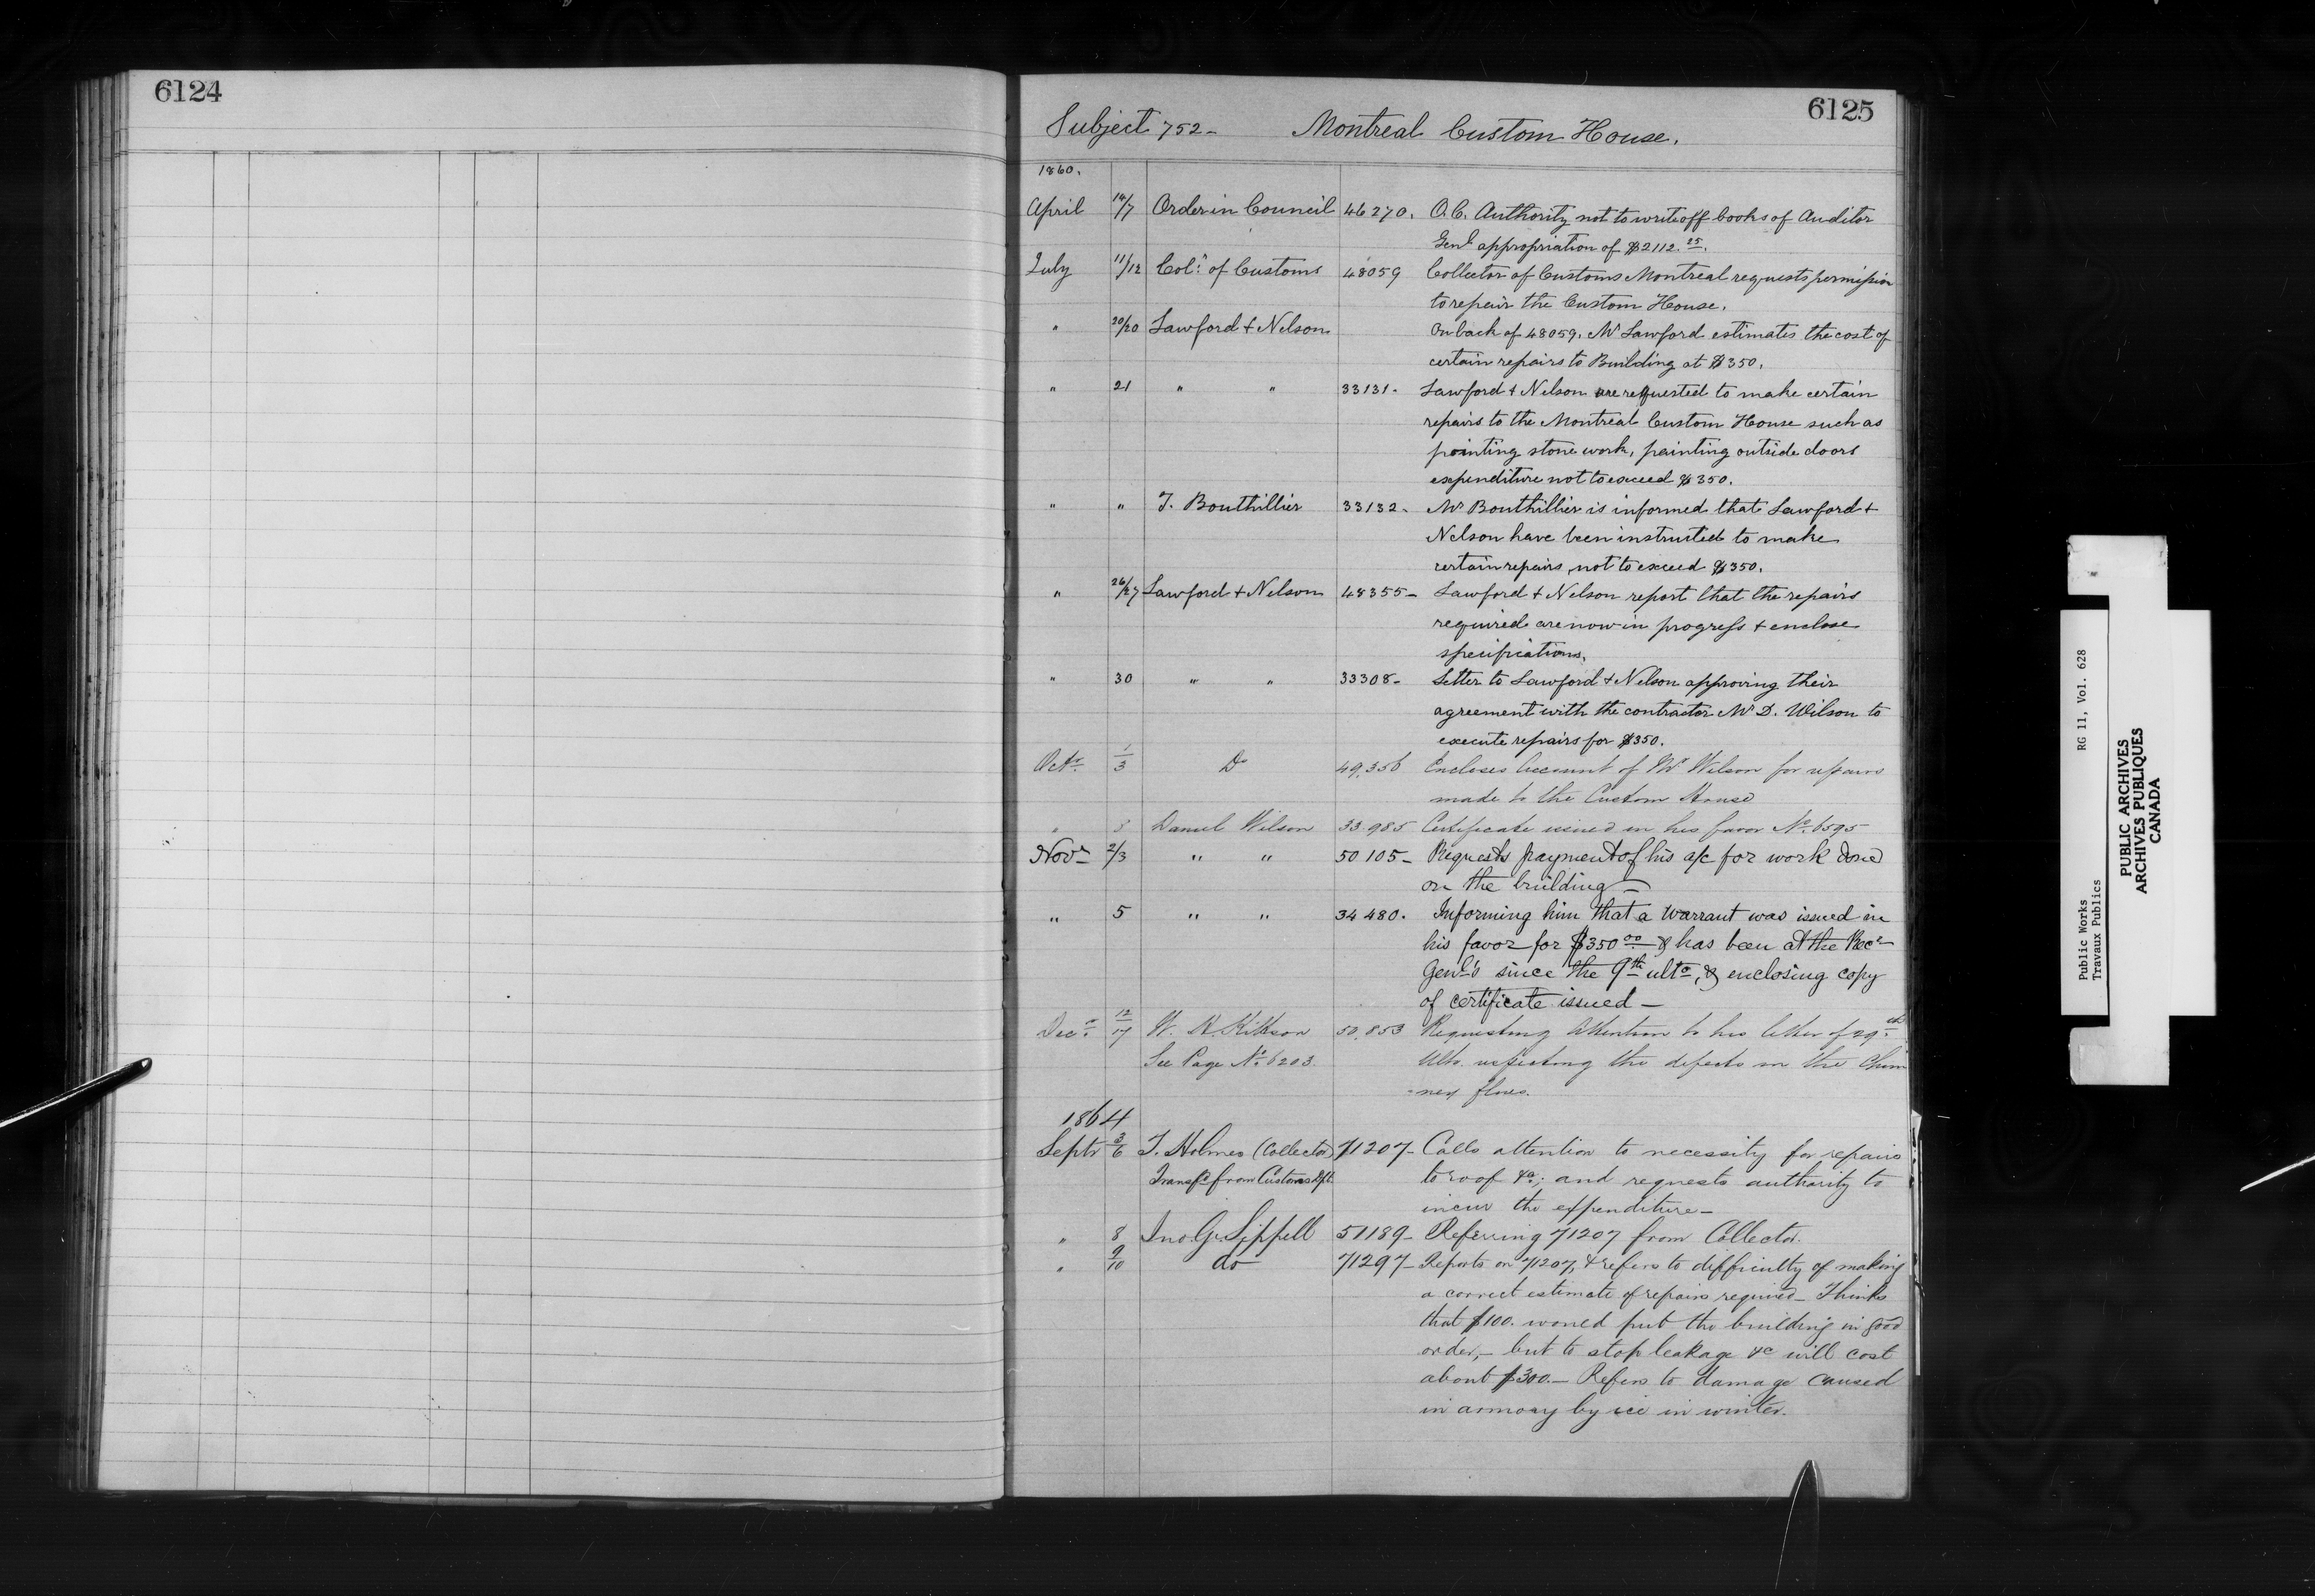 6124
6125
Subject 752- Montreal Custom House.
1860.
April 14/7 Order in Council 46270. O.C. Authority not to write off books of Auditor
Genl appropriation of $2112.25.
July 11/12 Colr of Customs 48059 Collector of Customs Montreal requests permission
to repair the Custom House.
" 20/20 Lawford & Nelson On back of 48059. Mr Lawford estimates the cost of
certain repairs to Building at $350.
" 21 " " 33131- Lawford & Nelson are requested to make certain
repairs to the Montreal Custom House such as
pointing stone work, painting outside doors
expenditure not to exceed $350.
" " T. Bouthillier 33132- Mr Bouthillier is informed that Lawford &
Nelson have been instructed to make
certain repairs, not to exceed $350.
" 26/27 Lawford & Nelson 48355- Lawford & Nelson report that the repairs
required are now in progress & enclose
specifications.
" 30 " " 33308- Letter to Lawford & Nelson approving their
agreement with the contractor Mr D. Wilson to
execute repairs for $350.
Octr 1/3 Do 49,356 Encloses Account of Mr Wilson for repairs
made to the Custom House
" 3 Daniel Wilson 33.985 Certificate issued in his favor No 6595
Novr 2/3 " " 50105- Requests payment of his a/c for work done
on the building-
" 5 " " 34480. Informing him that a warrant was issued in
his favor for $350 00 & has been at the Recr
Genl's since the 9th ulto, & enclosing copy
of certificate issued-
Decr 12/17 W. R. Kittson 50,853 Requesting attention to his letter of 29th
Ulto. respecting the defects in the Chim
-ney flues.
See Page No 6203.
1864
Septr 3/6 T. Holmes (Collector) 71207- Calls attention to necessity for repairs
Transfd from Customs Dpt. to roof &c; and requests authority to
incur the expenditure-
" 8 Jno. G. Sippell 51189- Referring 71207 from Collector.
" 9/10 do 71297- Reports on 71207, & refers to difficulty of making
a correct estimate of repairs required- Thinks
that $100. would put the building in good
order,- but to stop leakage &c will cost
about $300.- Refers to damage caused
in armory by ice in winter.
Public Works RG 11, Vol. 628
Travaux Publics
PUBLIC ARCHIVES
ARCHIVES PUBLIQUES
CANADA